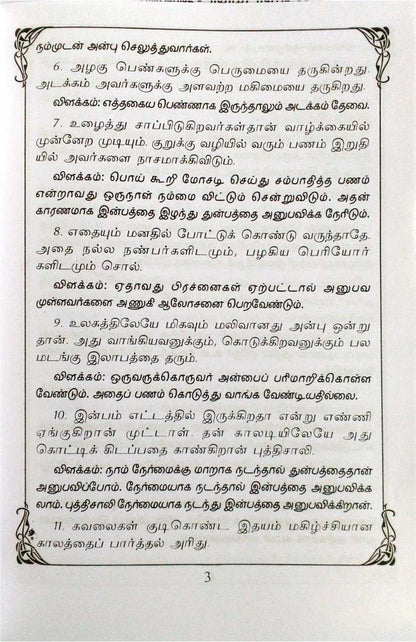 நம்முடன் அன்பு செலுத்துவார்கள்.
6. அழகு பெண்களுக்கு பெருமையை தருகின்றது.
அடக்கம் அவர்களுக்கு அளவற்ற மகிமையை தருகிறது.
விளக்கம்: எத்தகைய பெண்ணாக இருந்தாலும் அடக்கம் தேவை.
7. உழைத்து சாப்பிடுகிறவர்கள்தான் வாழ்க்கையில்
முன்னேற முடியும். குறுக்கு வழியில் வரும் பணம் இறுதி
யில் அவர்களை நாசமாக்கிவிடும்.
விளக்கம்: பொய் கூறி மோசடி செய்து சம்பாதித்த பணம்
என்றாவது ஒருநாள் நம்மை விட்டும் சென்றுவிடும். அதன்
காரணமாக இன்பத்தை இழந்து துன்பத்தை அனுபவிக்க நேரிடும்.
8. எதையும் மனதில் போட்டுக் கொண்டு வருந்தாதே.
அதை நல்ல நண்பர்களிடமும், பழகிய பெரியோர்
களிடமும் சொல்.
விளக்கம்: ஏதாவது பிரச்னைகள் ஏற்பட்டால் அனுபவ
முள்ளவர்களை அணுகி ஆலோசனை பெறவேண்டும்.
9. உலகத்திலேயே மிகவும் மலிவானது அன்பு ஒன்று
தான். அது வாங்கியவனுக்கும், கொடுக்கிறவனுக்கும் பல
மடங்கு இலாபத்தை தரும்.
விளக்கம்: ஒருவருக்கொருவர் அன்பைப் பரிமாறிக்கொள்ள
வேண்டும். அதைப் பணம் கொடுத்து வாங்க வேண்டியதில்லை.
10. இன்பம் எட்டத்தில் இருக்கிறதா என்று எண்ணி
ஏங்குகிறான் முட்டாள். தன் காலடியிலேயே அது
கொட்டிக் கிடப்பதை காண்கிறான் புத்திசாலி.
விளக்கம்: நாம் நேர்மைக்கு மாறாக நடந்தால் துன்பத்தைதான்
அனுபவிப்போம். நேர்மையாக நடந்தால் இன்பத்தை அனுபவிக்க
லாம். புத்திசாலி நேர்மையாக நடந்து இன்பத்தை அனுபவிக்கிறான்.
11. கவலைகள் குடிகொண்ட இதயம் மகிழ்ச்சியான
காலத்தைப் பார்த்தல் அரிது.
3